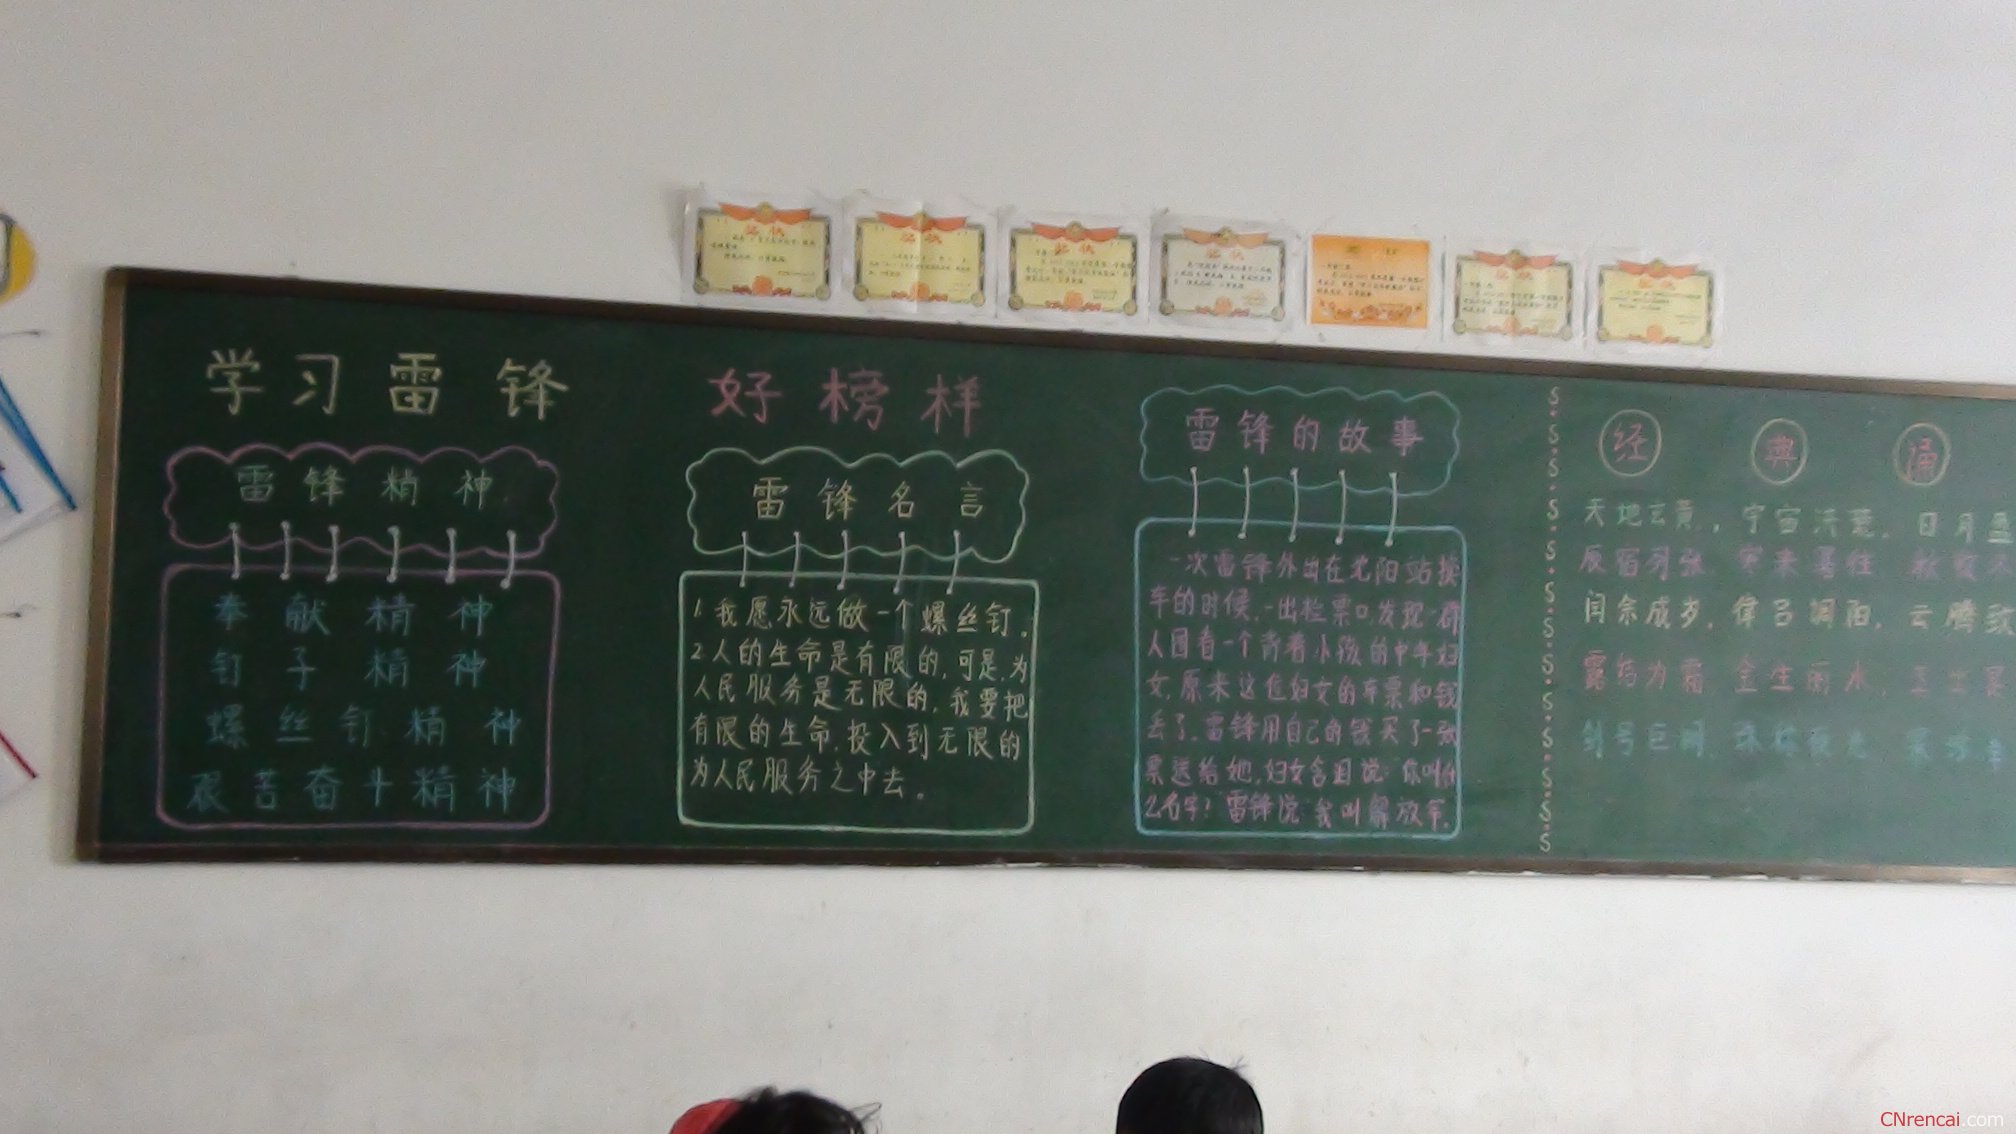 奖状
奖状
奖状
奖状
奖状
奖状
学习雷锋 好榜样
雷锋精神
奉献精神
钉子精神
螺丝钉精神
艰苦奋斗精神
雷锋名言
1.我愿永远做一个螺丝钉。
2.人的生命是有限的,可是,为
人民服务是无限的,我要把
有限的生命,投入到无限的
为人民服务之中去。
雷锋的故事
一次雷锋外出在沈阳站换
车的时候,一出检票口,发现一群
人围看一个背着小孩的中年妇
女,原来这位妇女的车票和钱
丢了,雷锋用自己的钱买了一张
票送给她,妇女含泪说:你叫什
么名字?雷锋说:我叫解放军.
经 典 诵
天地玄黄, 宇宙洪荒, 日月盈
辰宿列张 寒来暑往 秋收
闰余成岁, 律吕调阳, 云腾致
露结为霜 金生丽水 玉出
剑号巨阙 珠称夜光
CNrencai.com